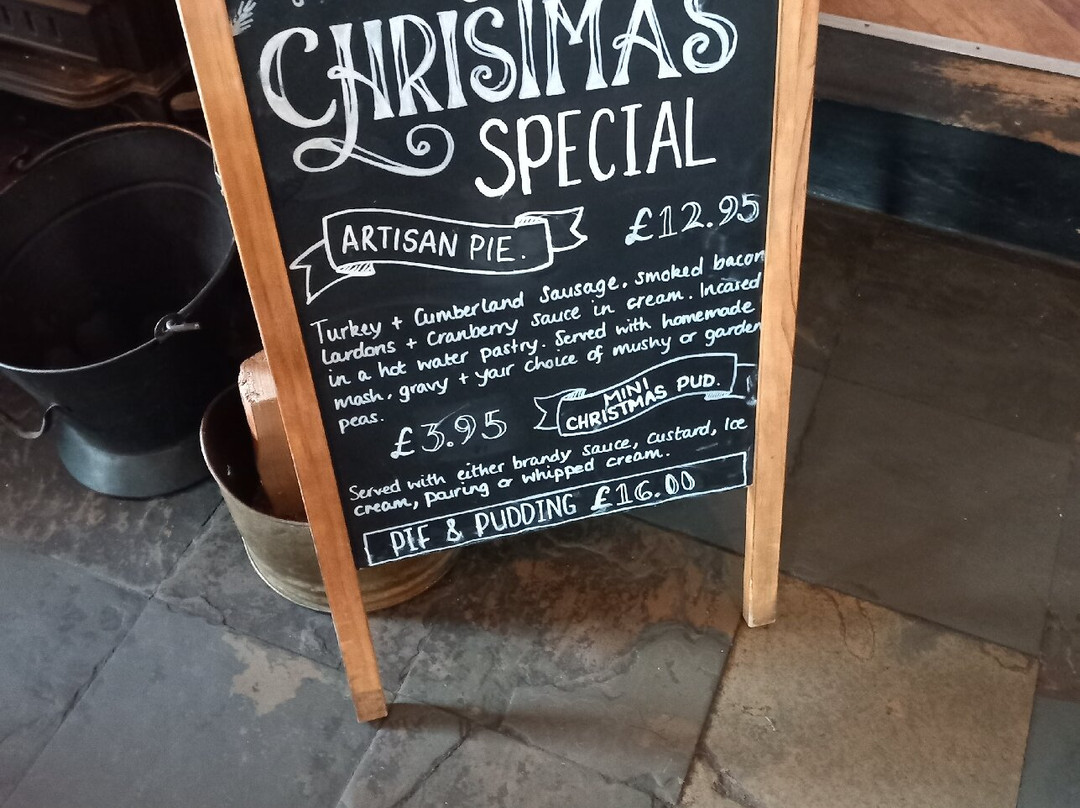 CHRISTMAS
SPECIAL
ARTISAN PIE.
£12.95
Turkey + Cumberland Sausage. smoked bacon
Lardons + Cranberry sauce in cream. Incased
in a hot water pastry. Served with homemade
mash, gravy + your choice of mushy or garden
peas.
£3.95
MINI
CHRISTMAS PUD.
Served with either brandy sauce, custard, Ice
cream, pouring or whipped cream.
PIE & PUDDING £16.00